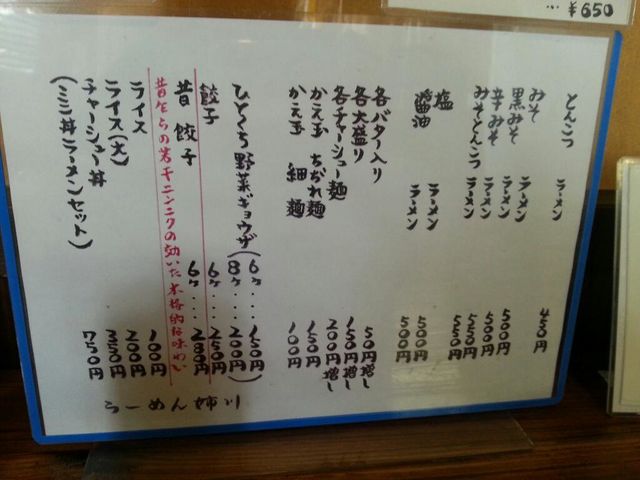 … ¥650
とんこつ ラーメン 450円
みそ ラーメン 500円
黒みそ ラーメン 500円
辛みそ ラーメン 550円
みそとんこつ ラーメン 550円
塩 ラーメン 500円
醤油 ラーメン 500円
各バター入り 50円増し
各大盛り 150円増し
各チャーシュー麺 200円増し
かえ玉 ちぢれ麺 150円
かえ玉 細麺 100円
ひとくち野菜ギョウザ(6ヶ....150円
8ヶ....200円)
餃子 6ヶ....250円
昔餃子 6ヶ....280円
昔ならの若干ニンニクの効いた本格的な味わい
ライス 100円
ライス(大) 200円
チャーシュー丼 350円
(ミニ丼ラーメンセット) 750円
らーめん 姉川